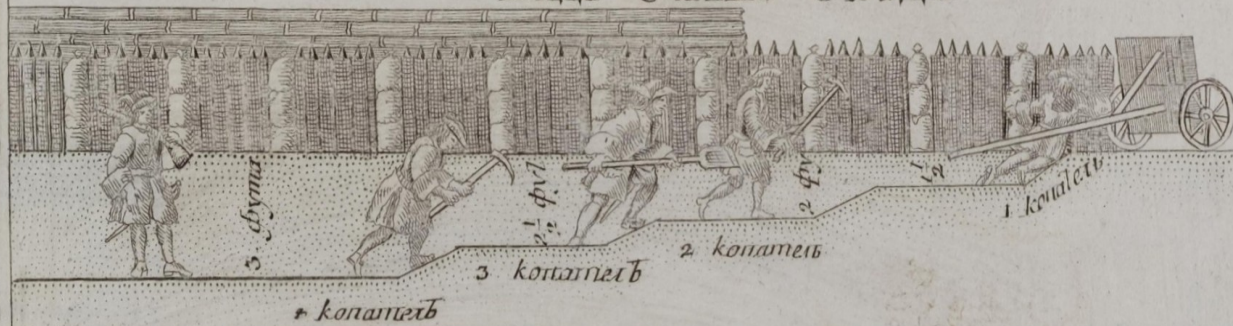 3 фута
2 1/2 фу
2 фу
1 1/2
1 копатель
2 копатель
3 копателъ
4 копателъ